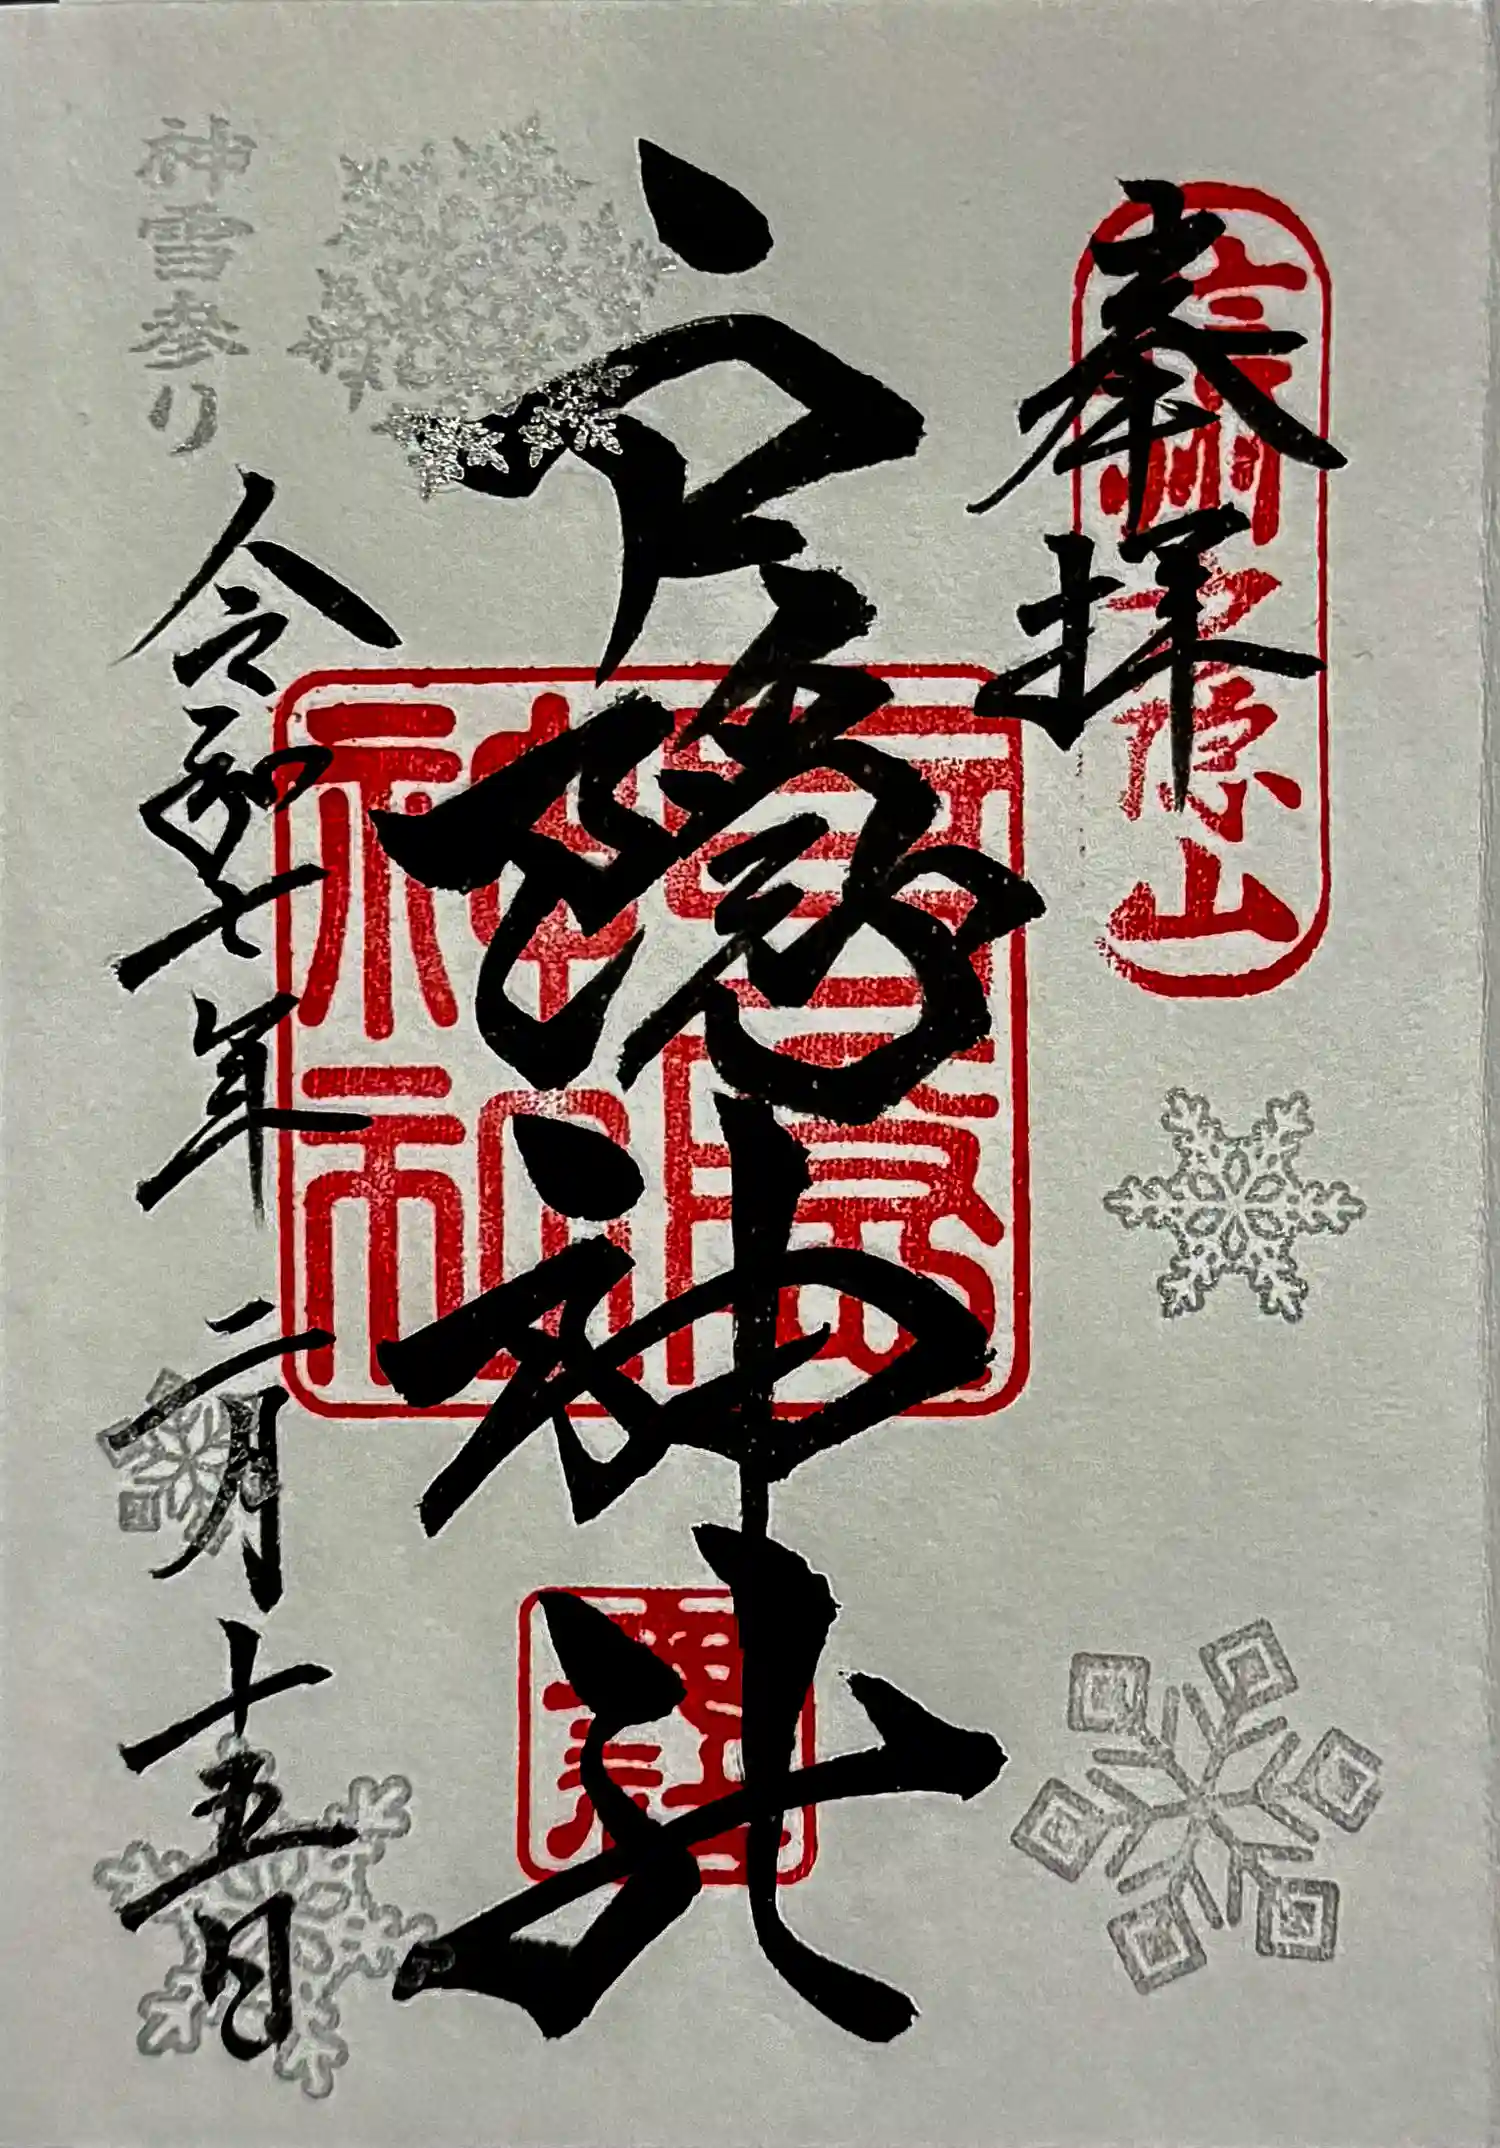 奉拝
信州戸隠山
戸隠神社
戸隠神社
神雪参り
令和七年 二月 十五日